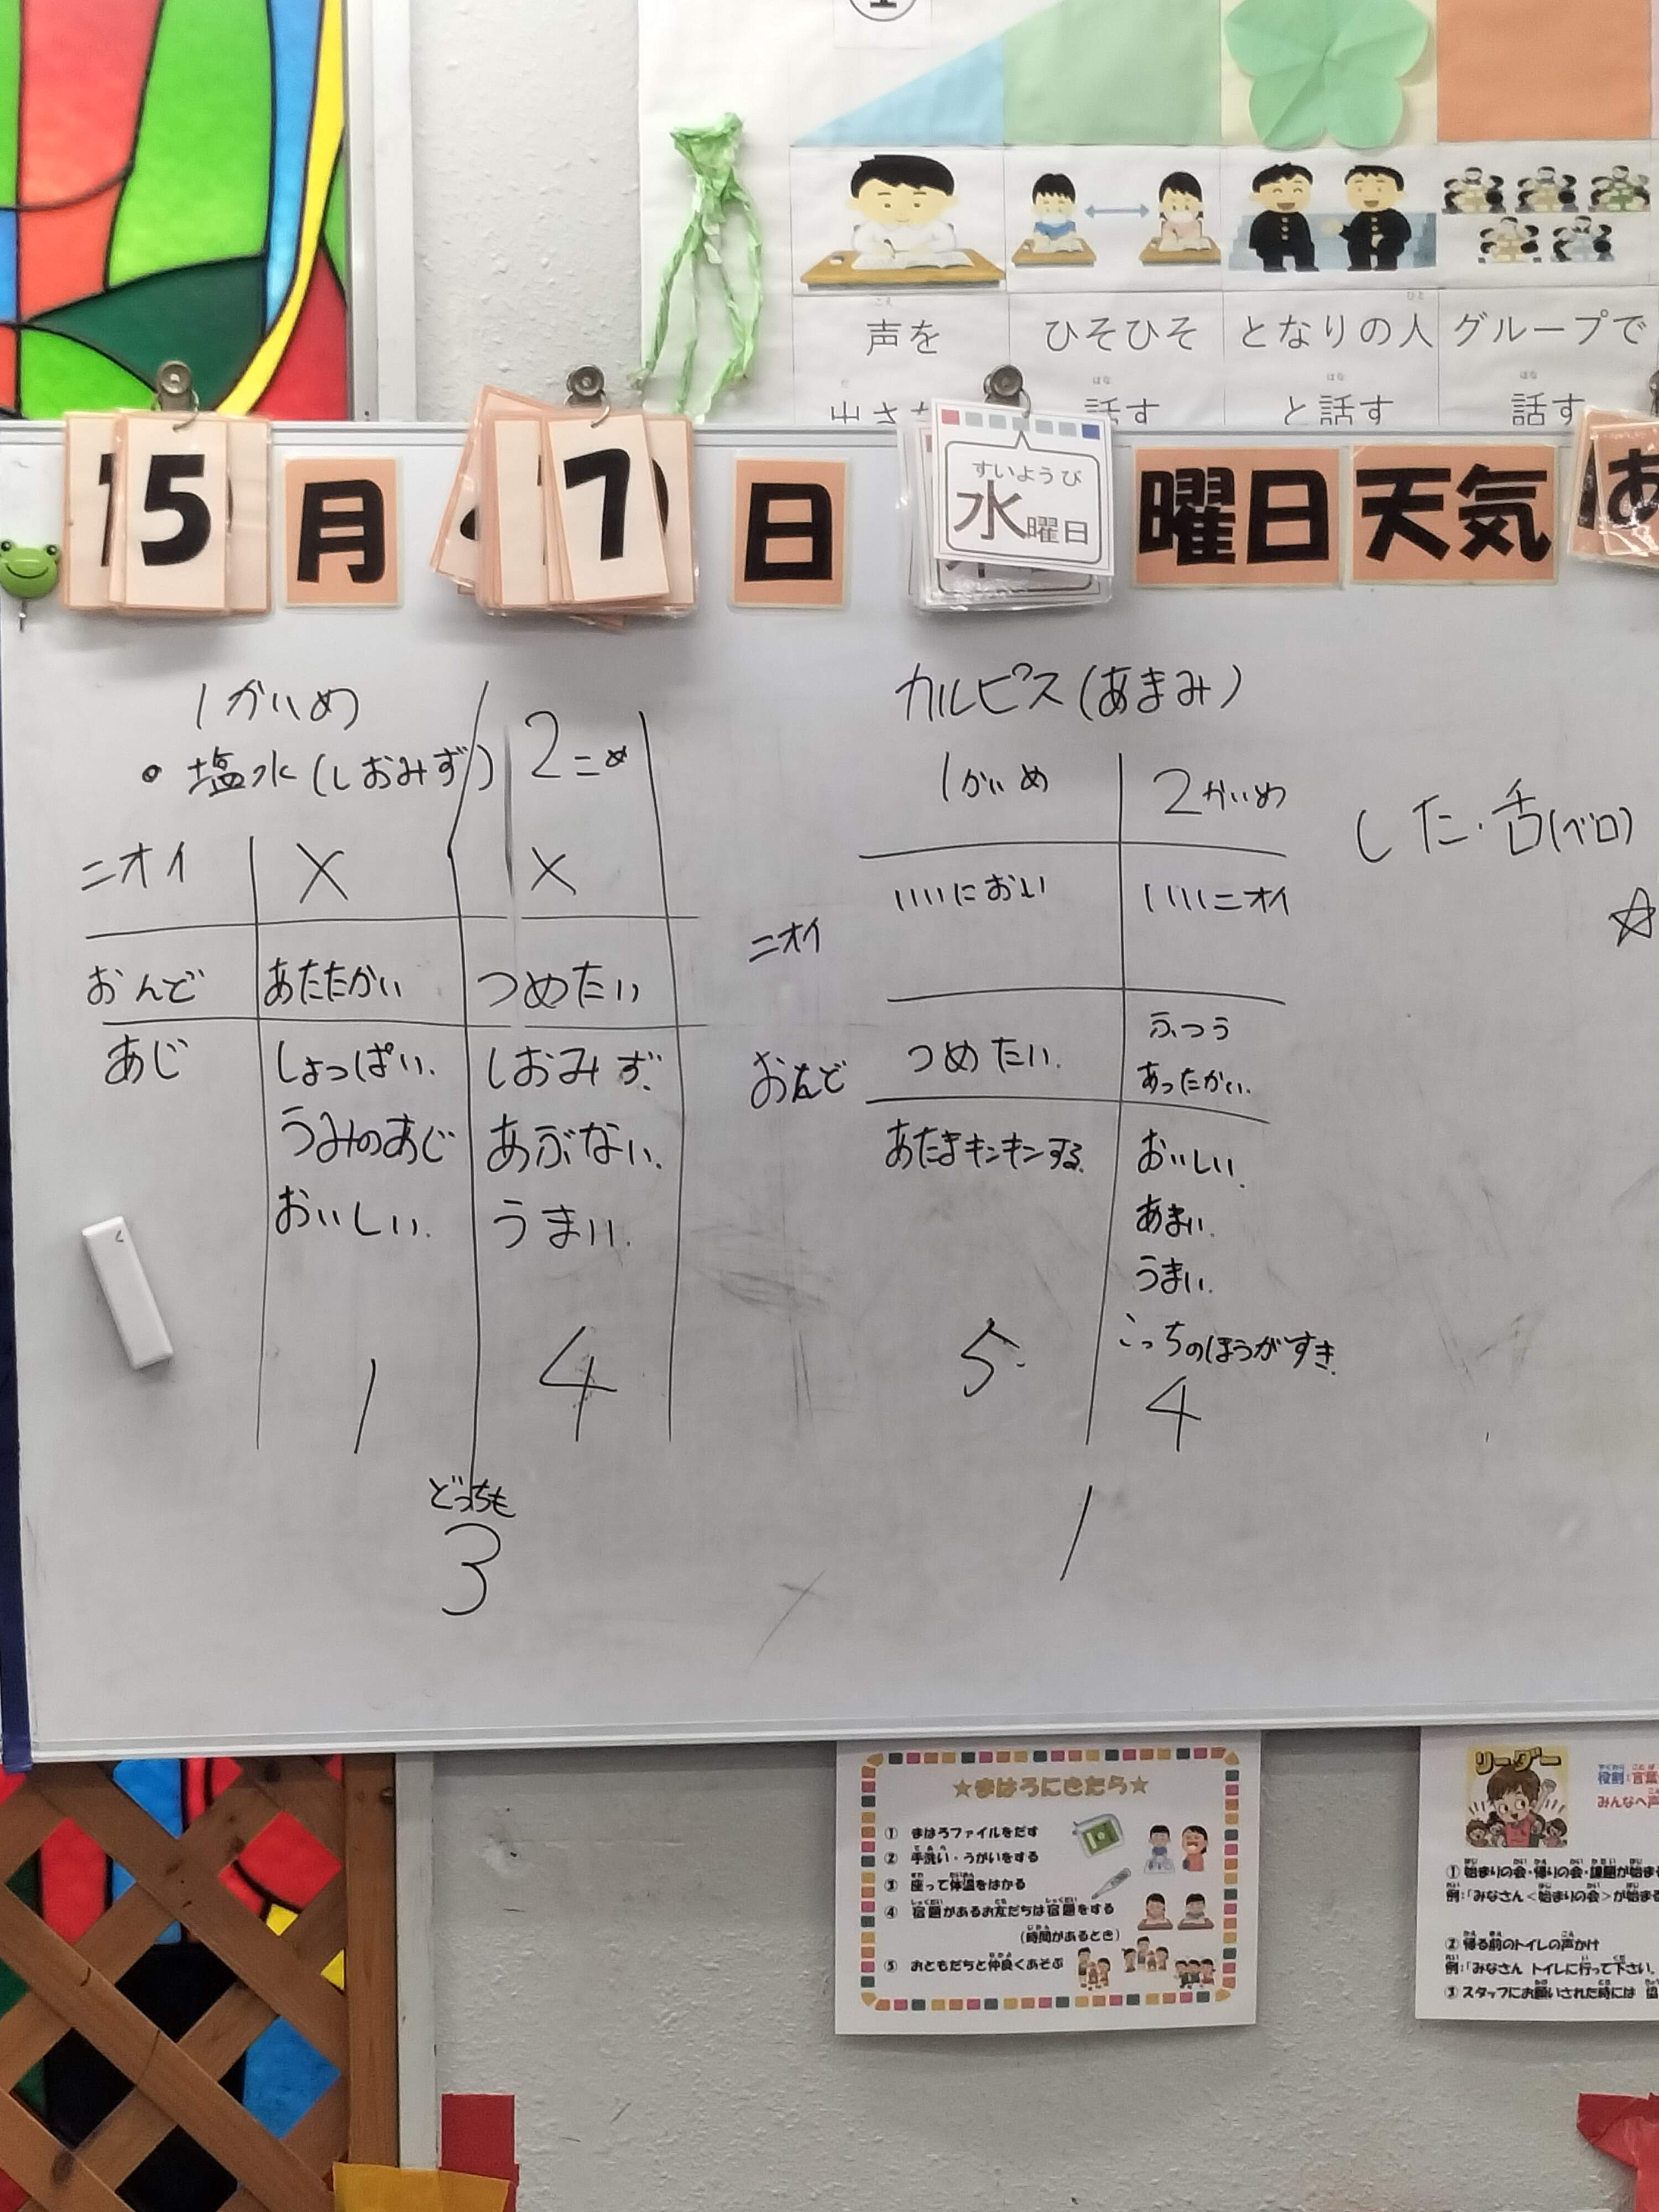 声を
ひそひそ
話す
となりの人
と話す
グループで
話す
5 月 7 日 水曜日 曜日 天気
すいようび
1かいめ
・塩水(しおみず)
2こめ
ニオイ × ×
おんど あたたかい つめたい
あじ しょっぱい. しおみず.
うみのあじ あぶない.
おいしい. うまい.
1 4
どっちも
3
カルピス(あまみ)
1かいめ 2かいめ
ニオイ いいにおい いいニオイ
おんど つめたい. ふつう
あったかい.
あたまキンキンする. おいしい.
あまい.
うまい.
こっちのほうがすき.
5. 4
1
した・舌(ベロ)
☆
☆まはろにきたら☆
① まはろファイルをだす
② 手洗い・うがいをする
③ 座って体温をはかる
④ 宿題があるお友だちは宿題をする
(時間があるとき)
⑤ おともだちと仲良くあそぶ
リーダー
役割:言葉
みんなへ声
① 始まりの会・帰りの会・課題が始まる
例:「みなさん<始まりの会>が始まる
② 帰る前のトイレの声かけ
例:「みなさん トイレに行って下さい。
③ スタッフにお願いされた時には 協